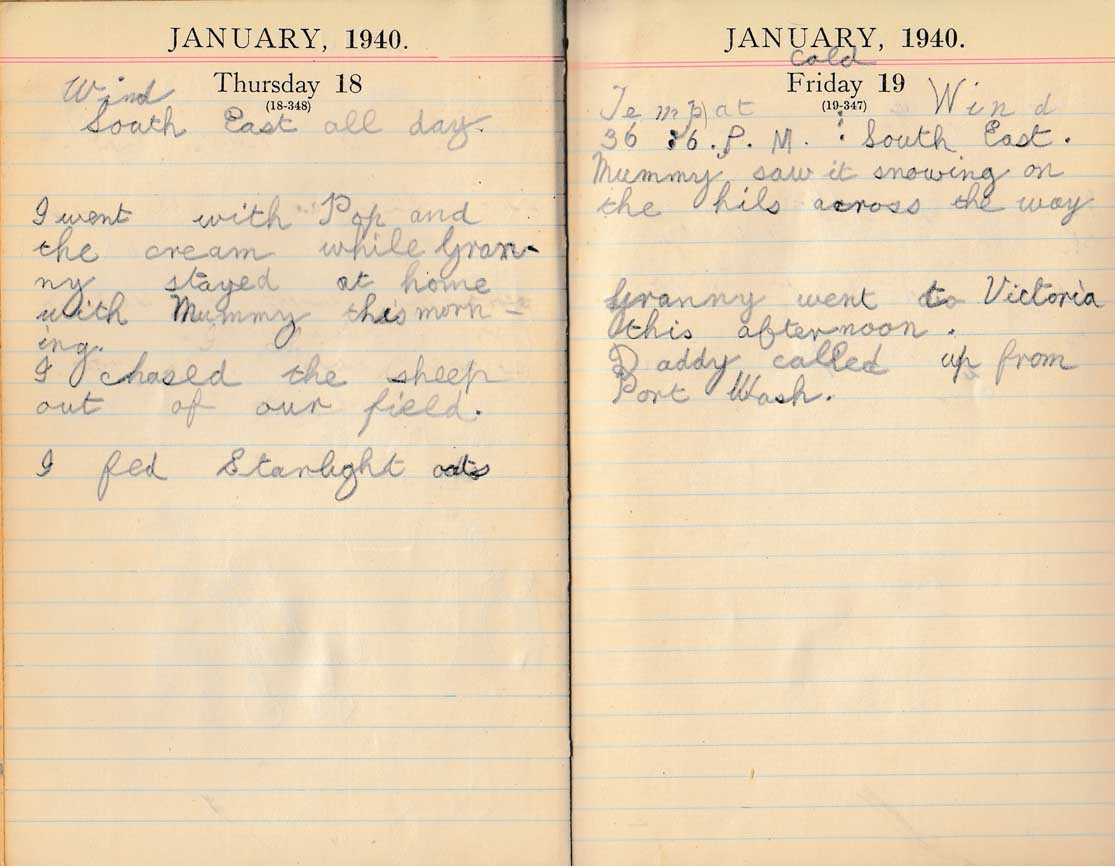 JANUARY, 1940.
Thursday 18
(18-348)
Wind
South East all day.
I went with Pop and
the cream while Gran-
ny stayed at home
with Mummy this morn-
ing.
I chased the sheep
out of our field.
I fed Starlight oats
JANUARY, 1940.
cold
Friday 19
(19-347)
Temp at Wind
36 6. P. M. : South East.
Mummy saw it snowing on
the hils across the way
Granny went to Victoria
this afternoon.
Daddy called up from
Port Wash.